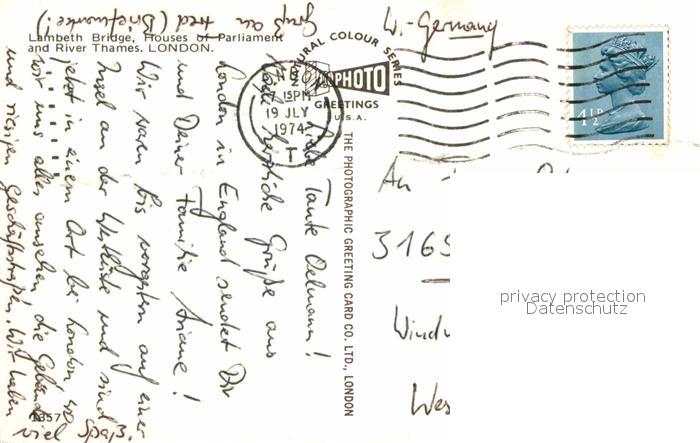 Lambeth Bridge, Houses of Parliament
and River Thames. LONDON.
W.-Germany
NATURAL COLOUR SERIES
PHOTO
GREETINGS
U.S.A.
LONDON
15PM
19 JLY
1974
4½P
THE PHOTOGRAPHIC GREETING CARD CO. LTD., LONDON
Liebe Tante Oelmann!
herzliche Grüße aus
London in England sendet Dir
und Deiner Familie Ariane!
Wir waren bis vorgestern auf einer
Insel an der Westküste und sind
jetzt in einem Ort bei London wo
wir uns alles ansehen die Gebäude
und riesigen Geschäftsstraßen. Wir haben
viel Spaß.
Gruß an Fred (Briefmarke!)
An
3165
Wind
Wes
privacy protection
Datenschutz